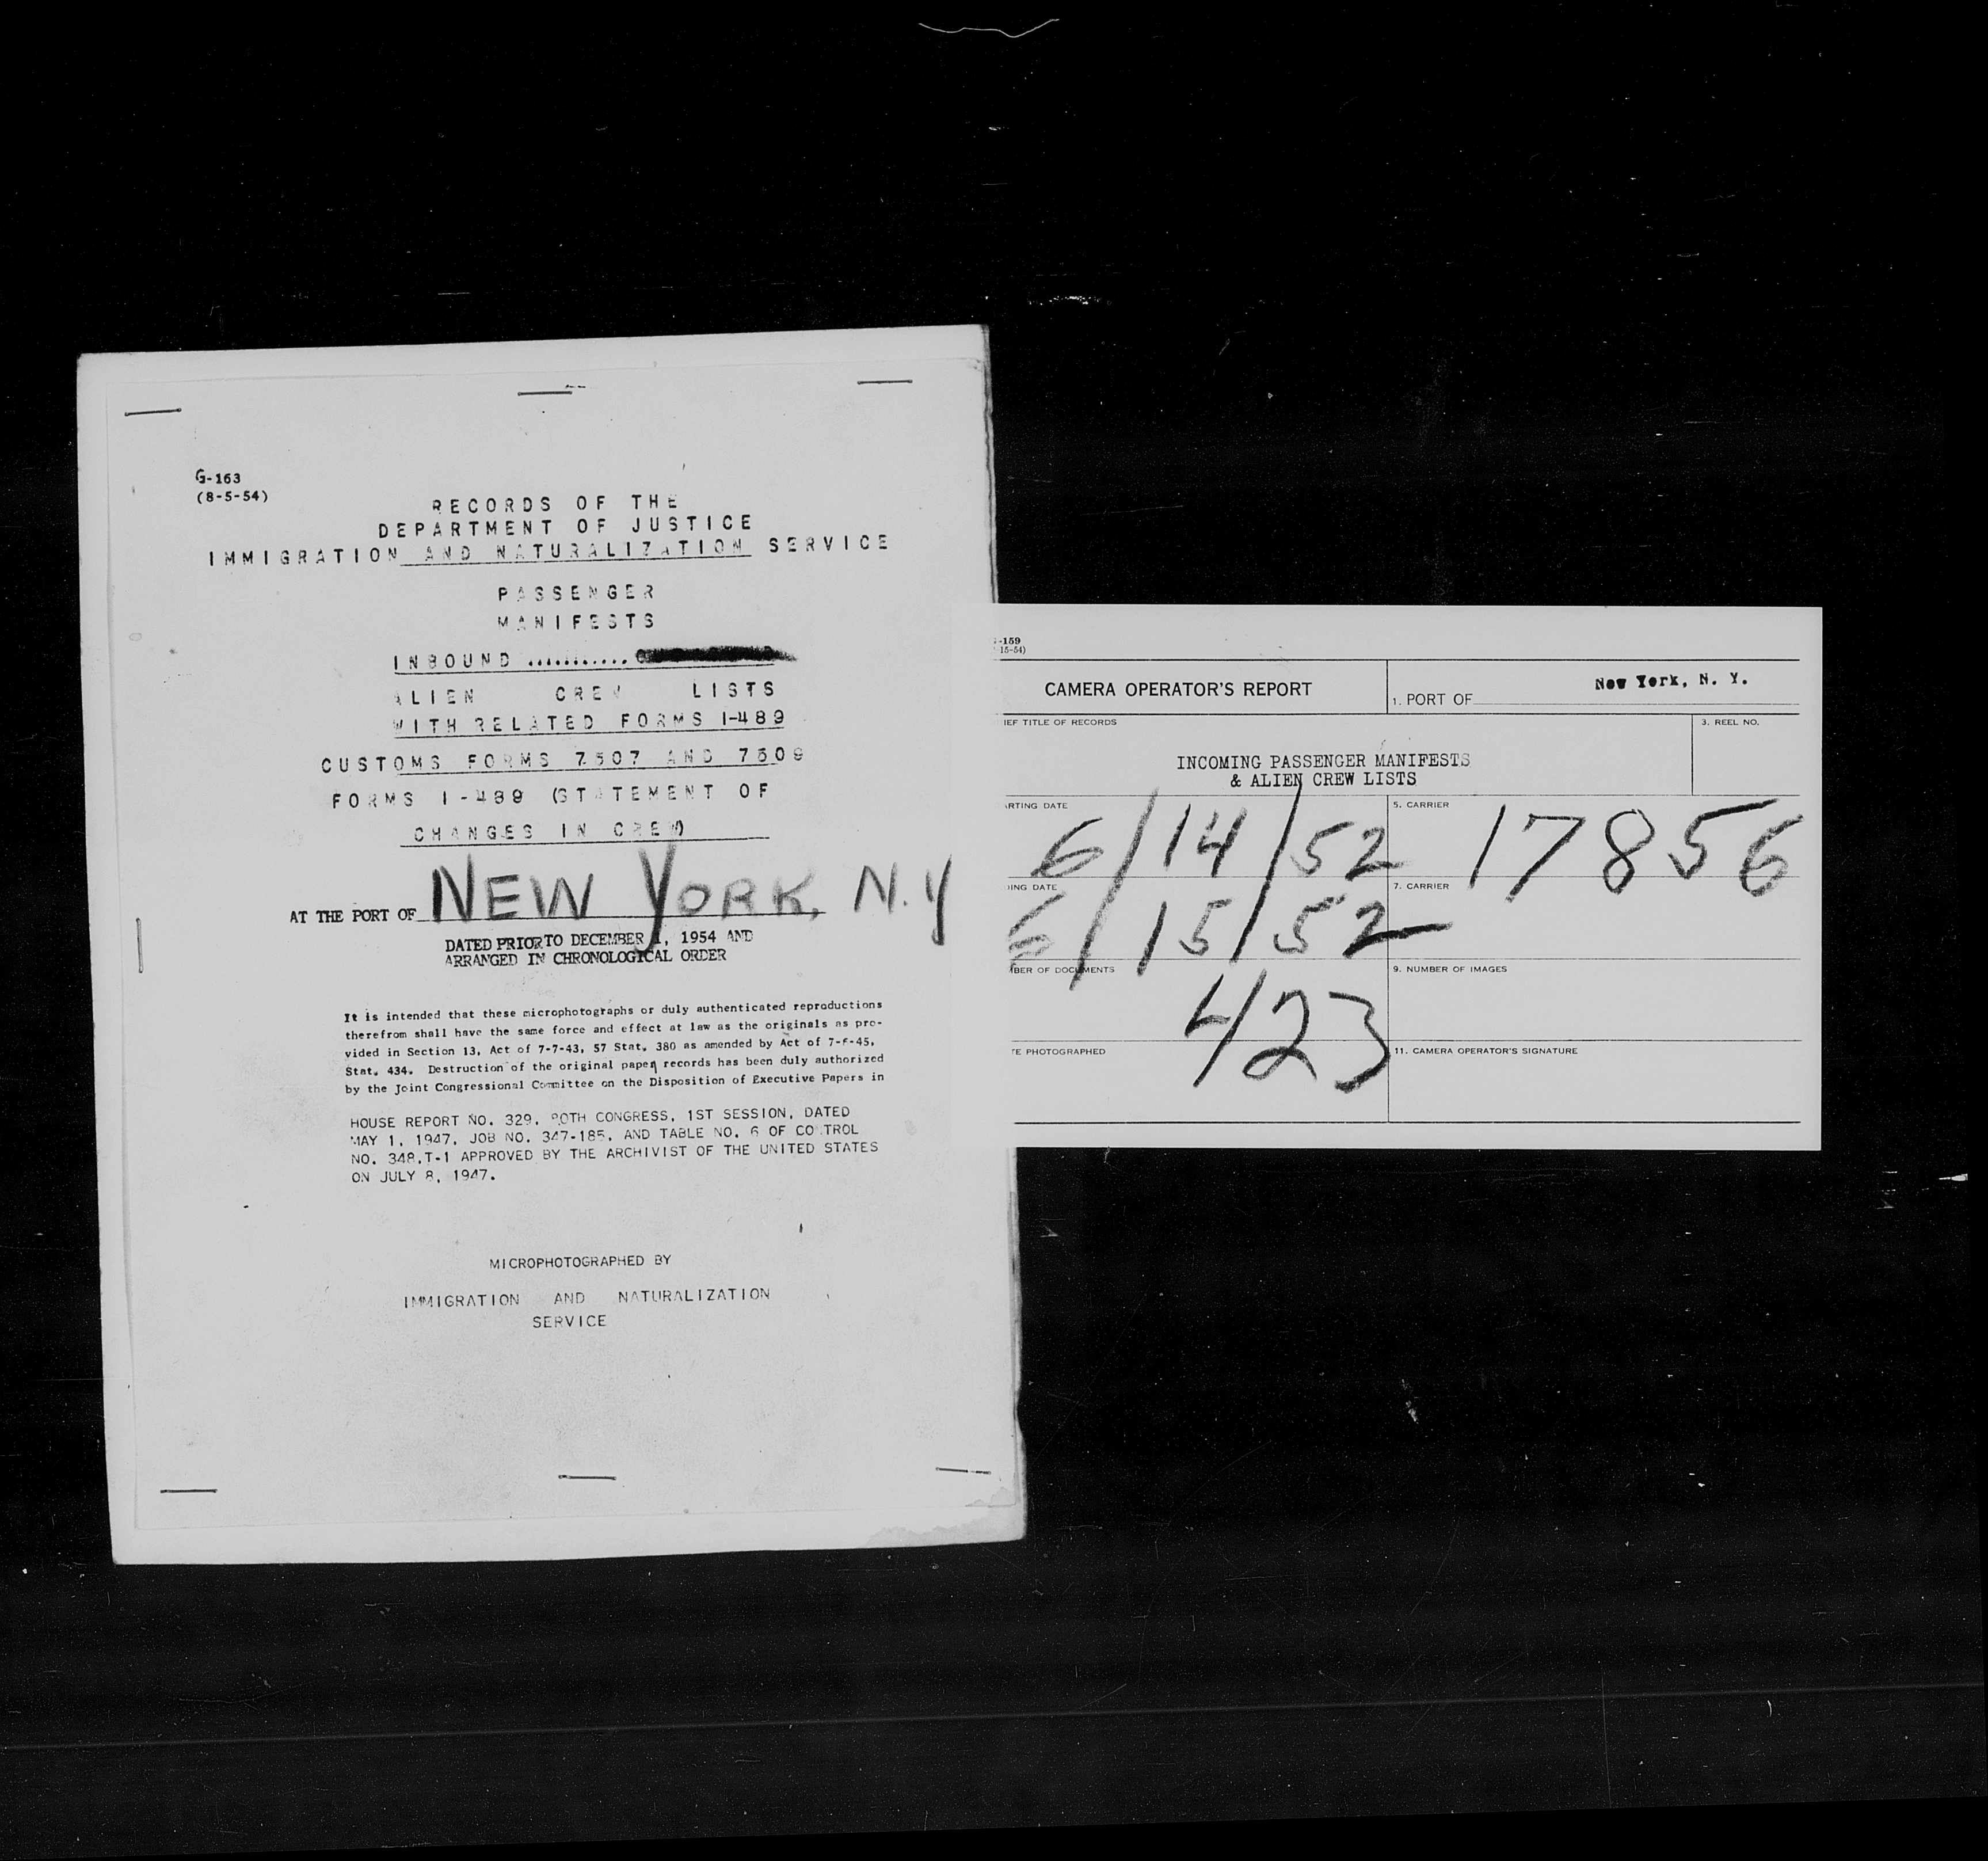 G-163
(8-5-54)
RECORDS OF THE
DEPARTMENT OF JUSTICE
IMMIGRATION AND NATURALIZATION SERVICE
PASSENGER
MANIFESTS
INBOUND ...........
ALIEN CREW LISTS
WITH RELATED FORMS I-489
CUSTOMS FORMS 7507 AND 7509
FORMS I-489 (STATEMENT OF
CHANGES IN CREW)
AT THE PORT OF NEW YORK, N.Y
DATED PRIOR TO DECEMBER 1, 1954 AND
ARRANGED IN CHRONOLOGICAL ORDER
It is intended that these microphotographs or duly authenticated reproductions
therefrom shall have the same force and effect at law as the originals as pro-
vided in Section 13, Act of 7-7-43, 57 Stat. 380 as amended by Act of
Stat. 434. Destruction of the original paper records has been duly authorized
by the Joint Congressional Committee on the Disposition of Executive Papers in
HOUSE REPORT NO. 329, 80TH CONGRESS, 1ST SESSION, DATED
MAY 1, 1947, JOB NO. 347-185, AND TABLE NO. 6 OF CONTROL
NO. 348.T-1 APPROVED BY THE ARCHIVIST OF THE UNITED STATES
ON JULY 8, 1947.
MICROPHOTOGRAPHED BY
IMMIGRATION AND NATURALIZATION
SERVICE
-159
15-54)
CAMERA OPERATOR'S REPORT
1. PORT OF New York, N. Y.
IEF TITLE OF RECORDS
3. REEL NO.
INCOMING PASSENGER MANIFESTS
& ALIEN CREW LISTS
RTING DATE
6/14/52
5. CARRIER
17856
ING DATE
6/15/52
7. CARRIER
BER OF DOCUMENTS
423
9. NUMBER OF IMAGES
TE PHOTOGRAPHED
11. CAMERA OPERATOR'S SIGNATURE